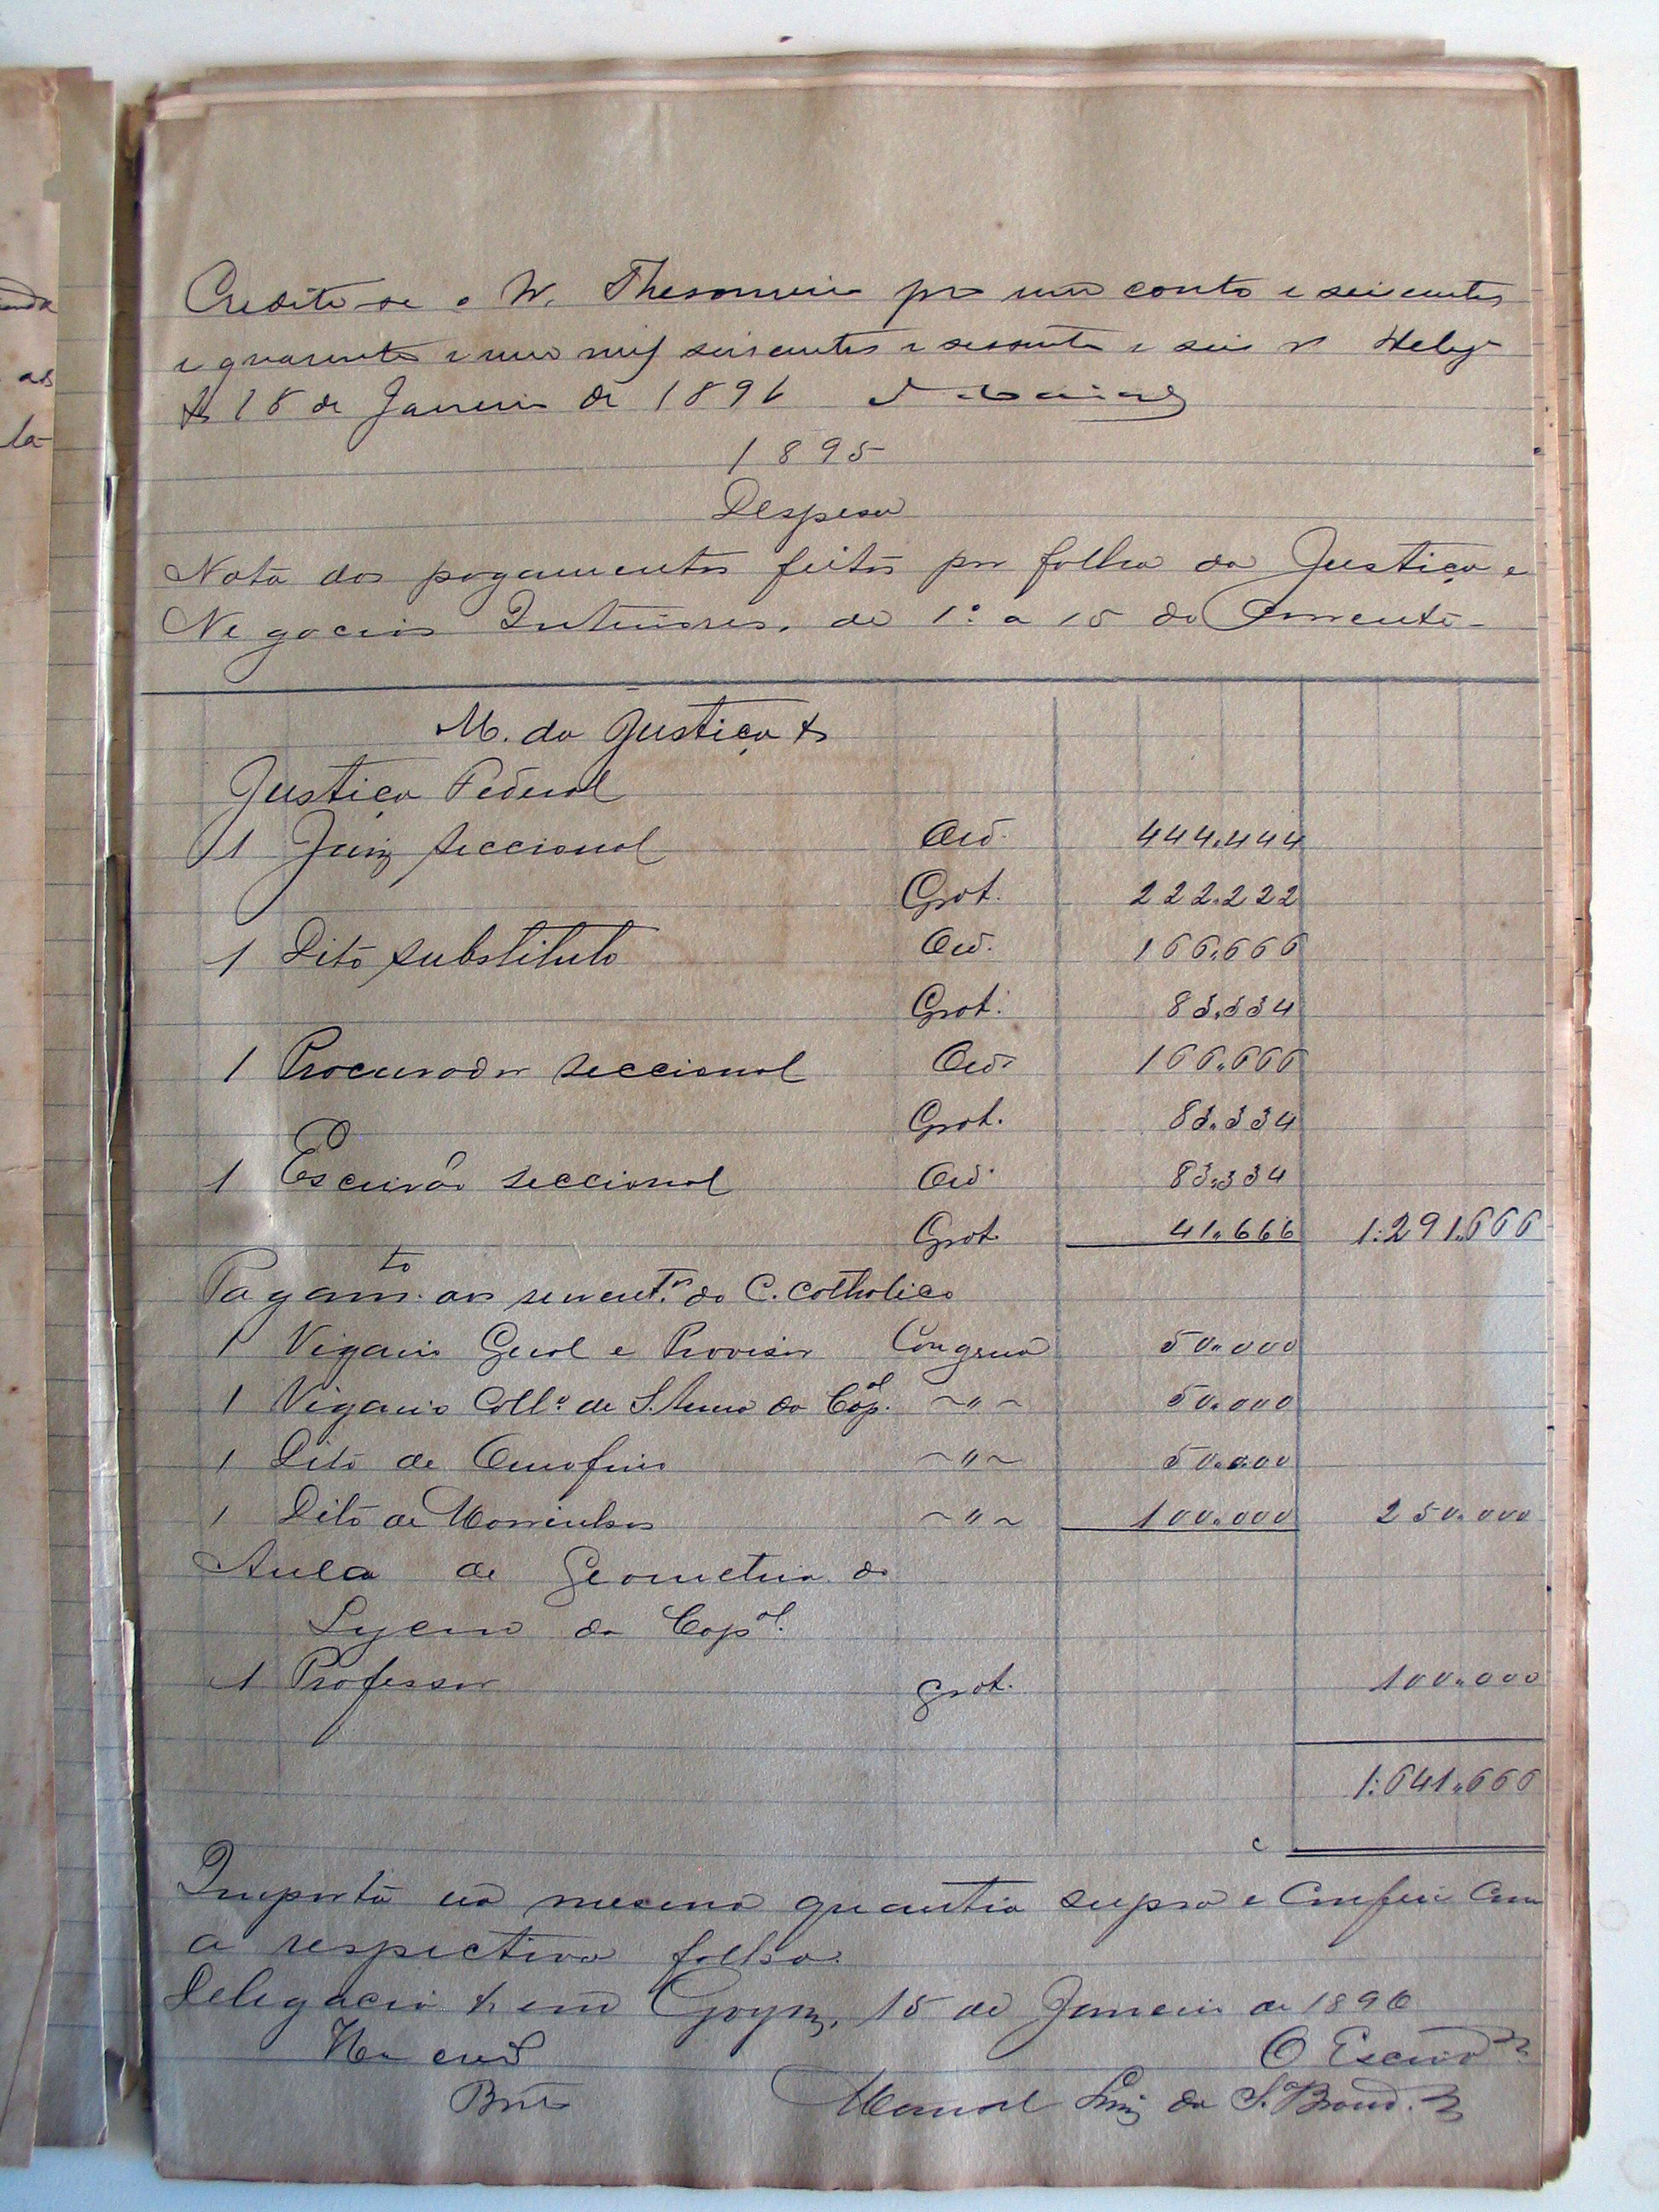 Credite-se o Sr. Thesoureiro por um conto e seiscentos
e quarenta e um mil seiscentos e sessenta e seis rs Deleg.
18 de Janeiro de 1896
1895
Despesa
Nota dos pagamentos feitos por folha da Justiça e
Negocios Interiores, de 1º a 15 do Corrente-
M. da Justiça &
Justiça Federal
1 Juiz seccional Ord. 444.444
Grat. 222.222
1 Dito substituto Ord. 166.666
Grat. 83.334
1 Procurador seccional Ord. 166.666
Grat. 83.334
1 Escrivão seccional Ord. 83.334
Grat. 41.666 1:291.666
Pagamto aos servent.es do C. Catholico
1 Vigario Geral e Provisor Congrua 50.000
1 Vigario Coll.º de S. Anna da Cap.al ~"~ 50.000
1 Dito de Ourofino ~"~ 50.000
1 Dito de Morrinhos ~"~ 100.000 250.000
Aula de Geometria do
Lyceu da Capal.
1 Professor grat. 100.000
1:641.666
Importa na mesma quantia supra e Conferi Com
a respectiva folha.
Delegacia & em Goyaz, 15 de Janeiro de 1896
O Escrivão
Brito Manoel Luiz da S.a Brand.